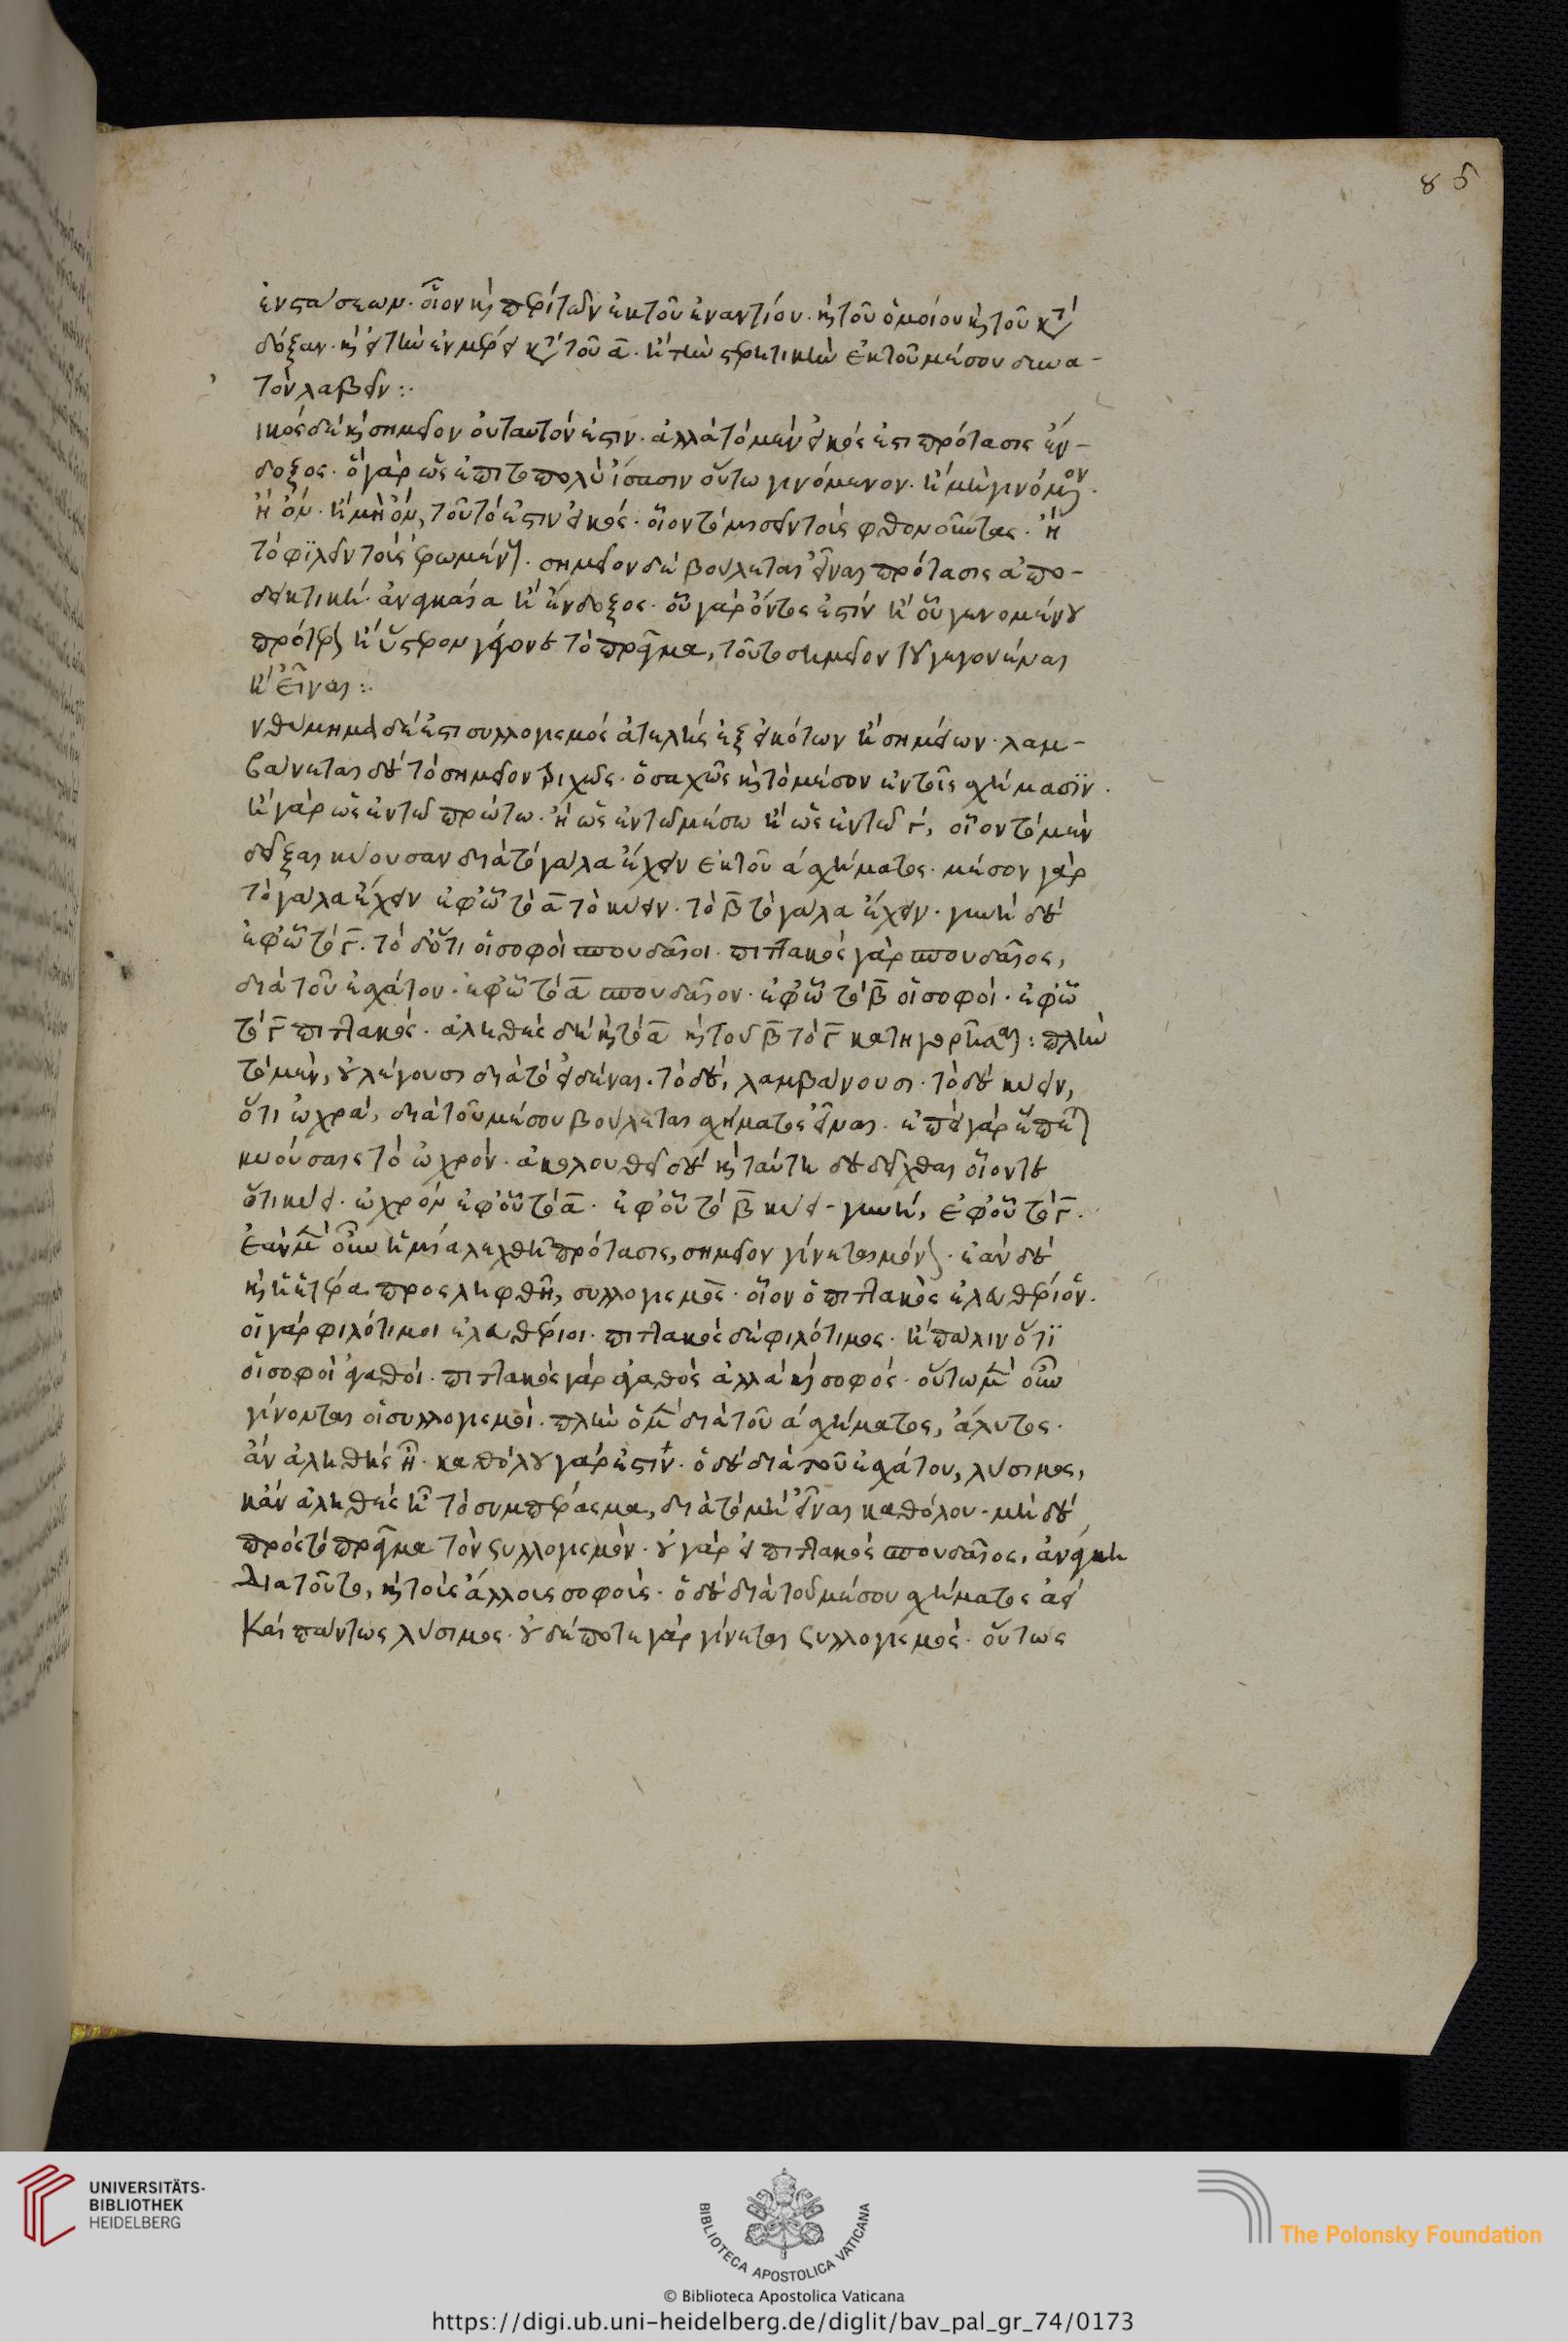 85
ἐνστάσεων· οἷον καὶ περὶ τῶν ἐκ τοῦ ἐναντίου· καὶ τοῦ ὁμοίου καὶ τοῦ κατὰ
δόξαν· καὶ εἰ τὴν ἐν μέρει κατὰ τοῦ α· ἢ τὴν στερητικὴν ἐκ τοῦ μέσου δυνα-
τὸν λαβεῖν:·
ικὸς δὲ καὶ σημεῖον οὐ ταυτόν ἐστιν· ἀλλὰ τὸ μὲν εἰκός ἐστι πρότασις ἔν-
δοξος· ὃ γὰρ ὡς ἐπιτοπολὺ ἴσασιν οὕτω γινόμενον· ἢ μὴ γινόμενον·
ἢ ὂν· ἢ μὴ ὂν, τοῦτό ἐστιν εἰκός· οἷον τὸ μισεῖν τοὺς φθονοῦντας· ἢ
τὸ φιλεῖν τοὺς ἐρωμένους· σημεῖον δὲ βούλεται εἶναι πρότασις ἀπο-
δεικτικὴ ἀναγκαία ἢ ἔνδοξος· οὗ γὰρ ὄντος ἐστὶν ἢ οὗ γενομένου
πρότερον ἢ ὕστερον γέγονε τὸ πρᾶγμα, τοῦτο σημεῖον τοῦ γεγονέναι
ἢ εἶναι:·
νθύμημα δέ ἐστι συλλογισμὸς ἀτελὴς ἐξ εἰκότων ἢ σημείων· λαμ-
βάνεται δὲ τὸ σημεῖον τριχῶς· ὁσαχῶς καὶ τὸ μέσον ἐν τοῖς σχήμασϊν·
ἢ γὰρ ὡς ἐν τῶ πρώτω· ἢ ὡς ἐν τῶ μέσω ἢ ὡς ἐν τῶ γ, οἷον τὸ μὲν
δεῖξαι κύουσαν διὰ τὸ γάλα ἔχειν ἐκ τοῦ α σχήματος· μέσον γὰρ
τὸ γάλα ἔχειν ἐφ' ὧ τὸ α τὸ κύειν· τὸ β τὸ γάλα ἔχειν· γυνὴ δὲ
ἐφ' ὧ τὸ γ· τὸ δ' ὅτι οἱ σοφοὶ σπουδαῖοι· πιττακὸς γὰρ σπουδαῖος,
διὰ τοῦ ἐσχάτου· ἐφ' ὧ τὸ α σπουδαῖον· ἐφ' ὧ τὸ β οἱ σοφοί· ἐφ' ὧ
τὸ γ πιττακός· ἀληθὲς δὲ καὶ τὸ α καὶ τοῦ β τὸ γ κατηγορῆσαι: πλὴν
τὸ μὲν, οὐ λέγουσι διὰ τὸ εἰδέναι· τὸ δὲ, λαμβάνουσι· τὸ δὲ κύειν,
ὅτι ὠχρά, διὰ τοῦ μέσου βούλεται σχήματος εἶναι· ἐπεὶ γὰρ ἕπεται
κυούσαις τὸ ὠχρόν· ἀκολουθεῖ δὲ καὶ ταύτη δεδεῖχθαι οἴονται
ὅτι κύει· ὠχρὸν ἐφ' οὗ τὸ α· ἐφ' οὗ τὸ β κύει· γυνὴ, ἐφ' οὗ τὸ γ·
ἐὰν μὲν οὖν ἡ μία λεχθῆ πρότασις, σημεῖον γίνεται μόνον· ἐὰν δὲ
καὶ ἡ ἑτέρα προσληφθῆ, συλλογισμός· οἷον ὁ πιττακὸς ἐλευθέριος·
οἱ γὰρ φιλότιμοι ἐλευθέριοι· πιττακὸς δὲ φιλότιμος· ἢ πάλιν ὅτϊ
οἱ σοφοὶ ἀγαθοί· πιττακὸς γὰρ ἀγαθὸς ἀλλὰ καὶ σοφός· οὕτω μὲν οὖν
γίνονται οἱ συλλογισμοί· πλὴν ὁ μὲν διὰ τοῦ α σχήματος, ἄλυτος·
ἂν ἀληθὴς ἦ· καθόλου γάρ ἐστιν· ὁ δὲ διὰ τοῦ ἐσχάτου, λύσιμος,
κἂν ἀληθὲς ἦ τὸ συμπέρασμα, διὰ τὸ μὴ εἶναι καθόλου· μὴ δὲ
πρὸς τὸ πρᾶγμα τὸν συλλογισμόν· οὐ γὰρ εἰ πιττακὸς σπουδαῖος, ἀνάγκη
διὰ τοῦτο, καὶ τοὺς ἄλλους σοφούς· ὁ δὲ διὰ τοῦ μέσου σχήματος ἀεὶ
καὶ πάντως λύσιμος· οὐδέποτε γὰρ γίνεται συλλογισμὸς· οὕτως
UNIVERSITÄTS-
BIBLIOTHEK
HEIDELBERG
BIBLIOTECA APOSTOLICA VATICANA
The Polonsky Foundation
© Biblioteca Apostolica Vaticana
https://digi.ub.uni-heidelberg.de/diglit/bav_pal_gr_74/0173